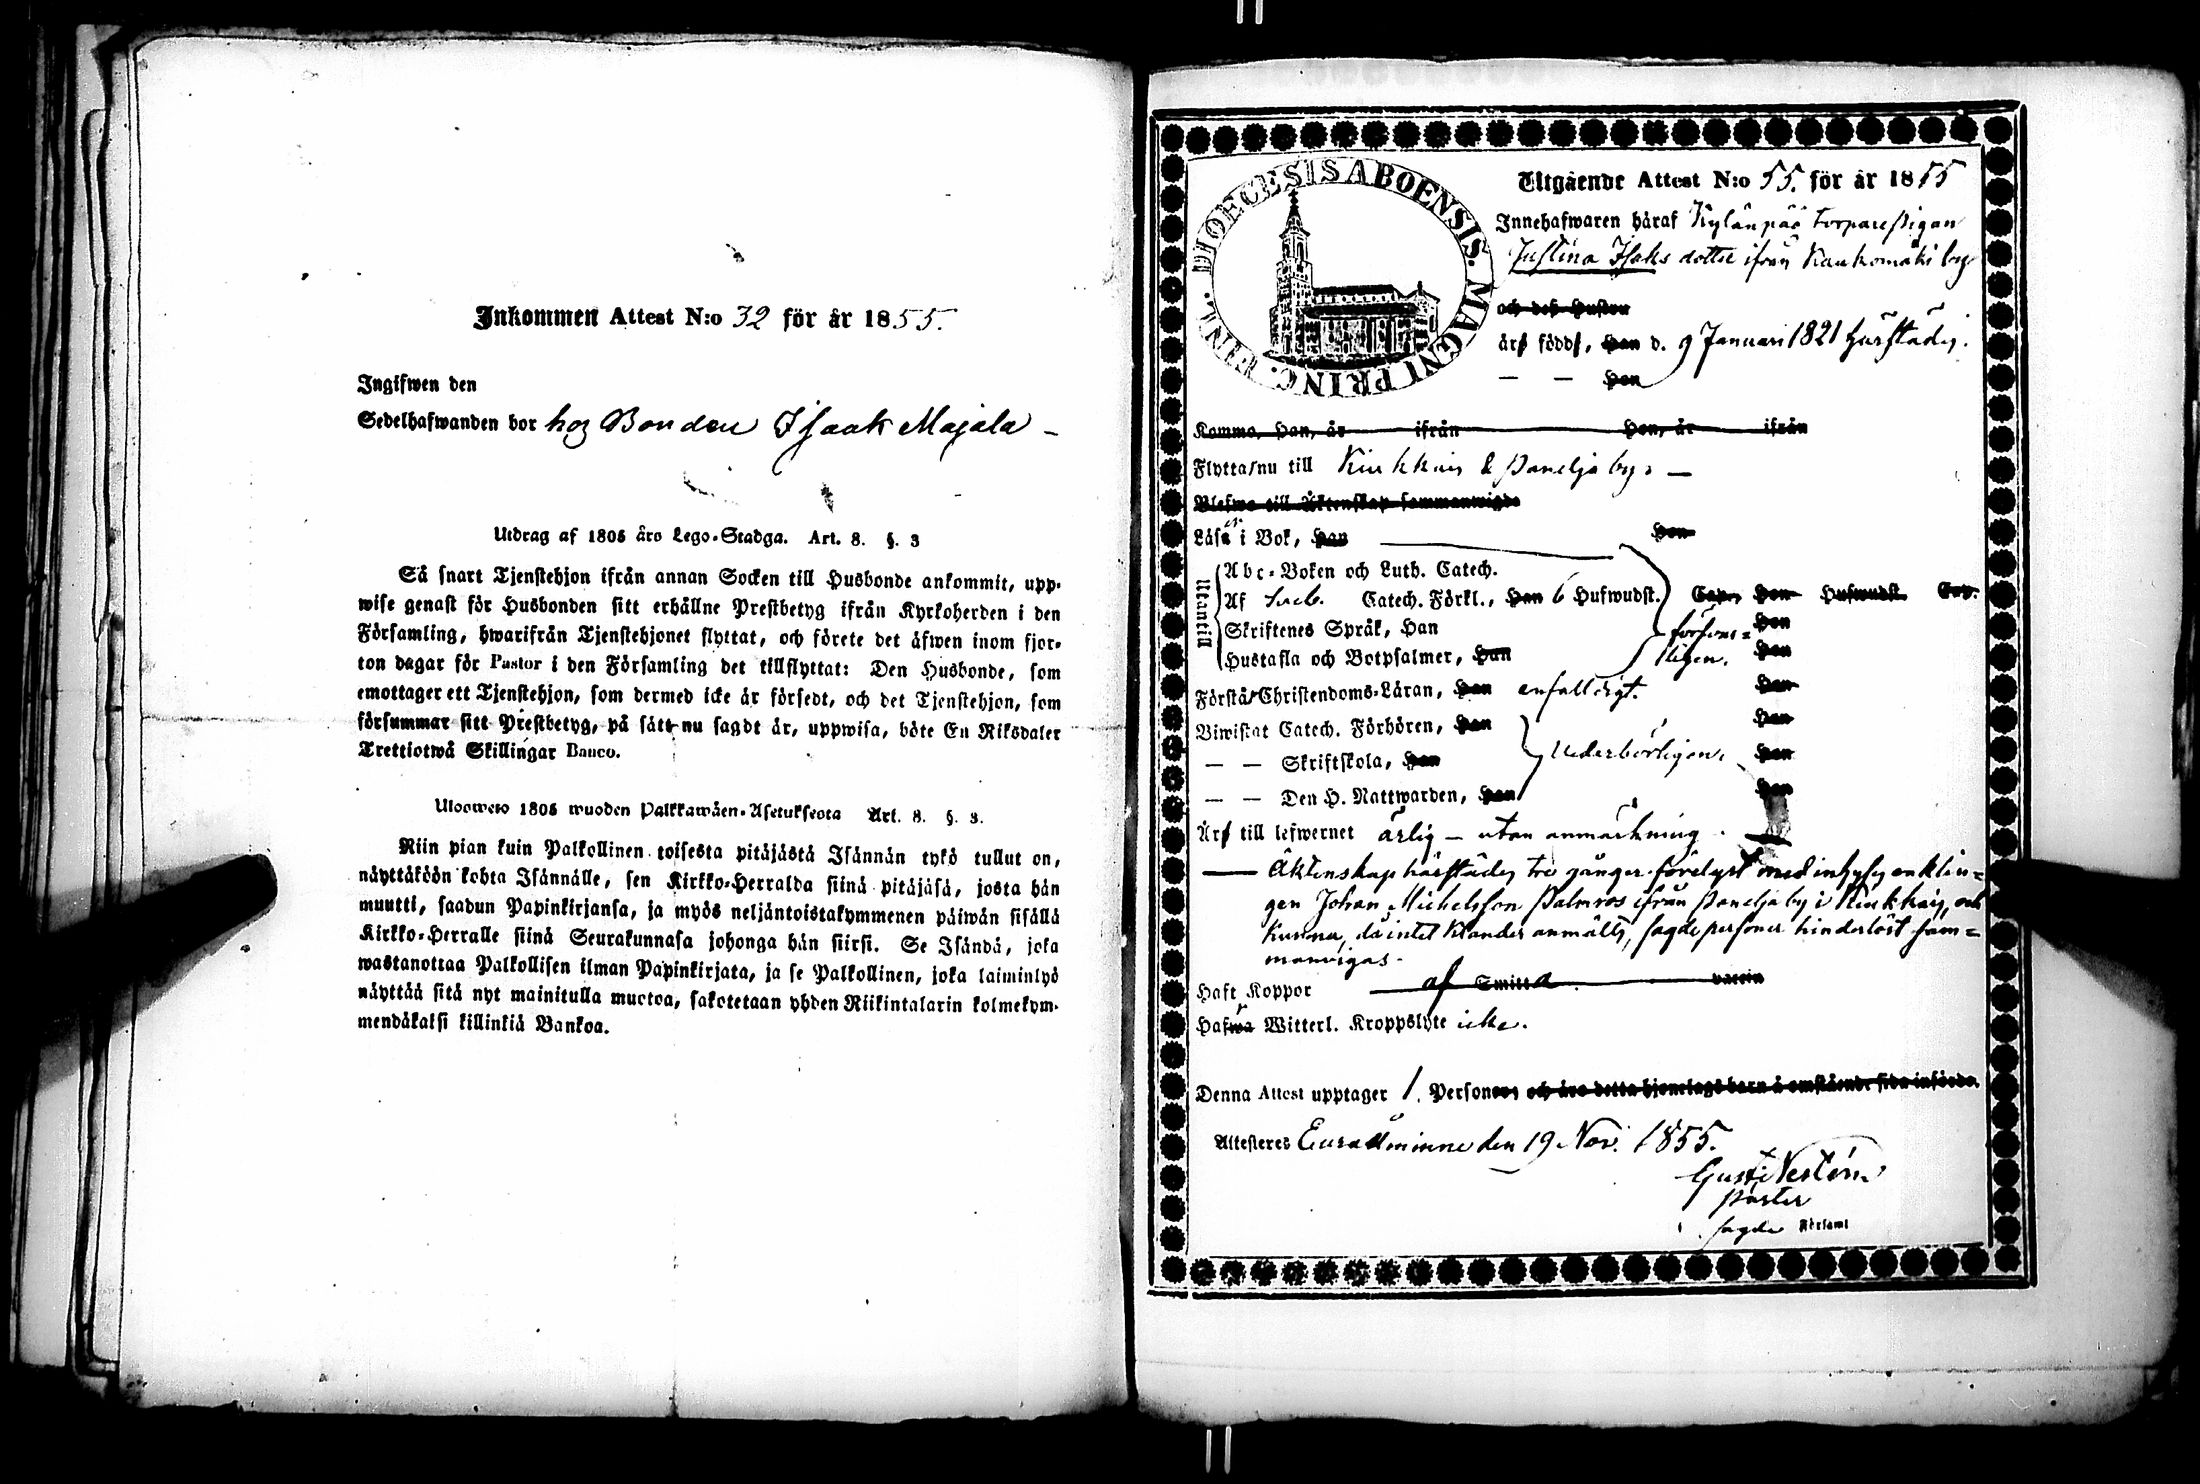 Inkommen Attest N:o 32 för år 1855.
Ingifwen den
Sedelhafwanden bor hos Bonden Isaak Majala –
Utdrag af 1805 års Lego-Stadga. Art. 8. §. 3
Så snart Tjenstehjon ifrån annan Socken till Husbonde ankommit, upp-
wise genast för Husbonden sitt erhållne Prestbetyg ifrån Kyrkoherden i den
Församling, hwarifrån Tjenstehjonet flyttat, och förete det äfwen inom fjor-
ton dagar för Pastor i den Församling det tillflyttat: Den Husbonde, som
emottager ett Tjenstehjon, som dermed icke är försedt, och det Tjenstehjon, som
försummar sitt Prestbetyg, på sätt nu sagdt är, uppwisa, böte En Riksdaler
Trettiotwå Skillingar Banco.
Uloswets 1805 wuoden Palkkawäen-Asetuksesta Art. 8. §. 3.
Niin pian kuin Palkollinen toisesta pitäjästä Isännän tykö tullut on,
näyttäköön kohta Isännälle, sen Kirkko-Herralda siinä pitäjäsä, josta hän
muutti, saadun Papinkirjansa, ja myös neljäntoistakymmenen päiwän sisällä
Kirkko-Herralle siinä Seurakunnasa johonga hän siirsi. Se Isändä, joka
wastanottaa Palkollisen ilman Papinkirjata, ja se Palkollinen, joka laiminlyö
näyttää sitä nyt mainitulla muotoa, sakotetaan yhden Riikintalarin kolmekym-
mendäkaksi killinkiä Bankoa.
DIOECESIS ABOENSIS. MAGNI PRINC. FINL.
Utgående Attest N:o 55. för år 1855
Innehafwaren häraf Kylänpää torparepigan
Justina Isaks dotter ifrån Kaukomäki by
och dess Hustru
äro födde, Han d. 9 Januari 1821 härstädes.
— — Hon
Komma, Han, år ifrån Hon, år ifrån
Flytta nu till Kiukkais & Panelja by. —
Blefwo till Äktenskap sammanwigde
Läser i Bok, Han Hon
Utantill
Abc-Boken och Luth. Catech.
Af Sweb. Catech. Förkl., Han 6 Hufwudst. Cap., Hon Hufwudst. Cap.
Skriftenes Språk, Han försvar- Hon
Hustafla och Botpsalmer, Han ligen. Hon
Förstå Christendoms-Läran, Han enfaldigt. Hon
Biwistat Catech. Förhören, Han Hon
— — Skriftskola, Han Vederbörligen. Hon
— — Den H. Nattwarden, Han Hon
Äro till lefwernet ärlig – utan anmärkning.
— Äktenskap härstädes tre gånger förelyst med inhyses enklin-
gen Johan Michelsson Palmros ifrån Panelja by i Kiukkais, och
kunna, då intet klander anmälts, sagde personer hinderlöst sam-
manvigas.
Haft Koppor af Smitta. vaccin
Hafwa Witterl. Kroppslyte icke.
Denna Attest upptager 1. Personer och äro detta hjonelags barn å omstående sida införde.
Attesteres Euraåminne den 19 Nov. 1855.
Gust.
Pastor
sagde Församl